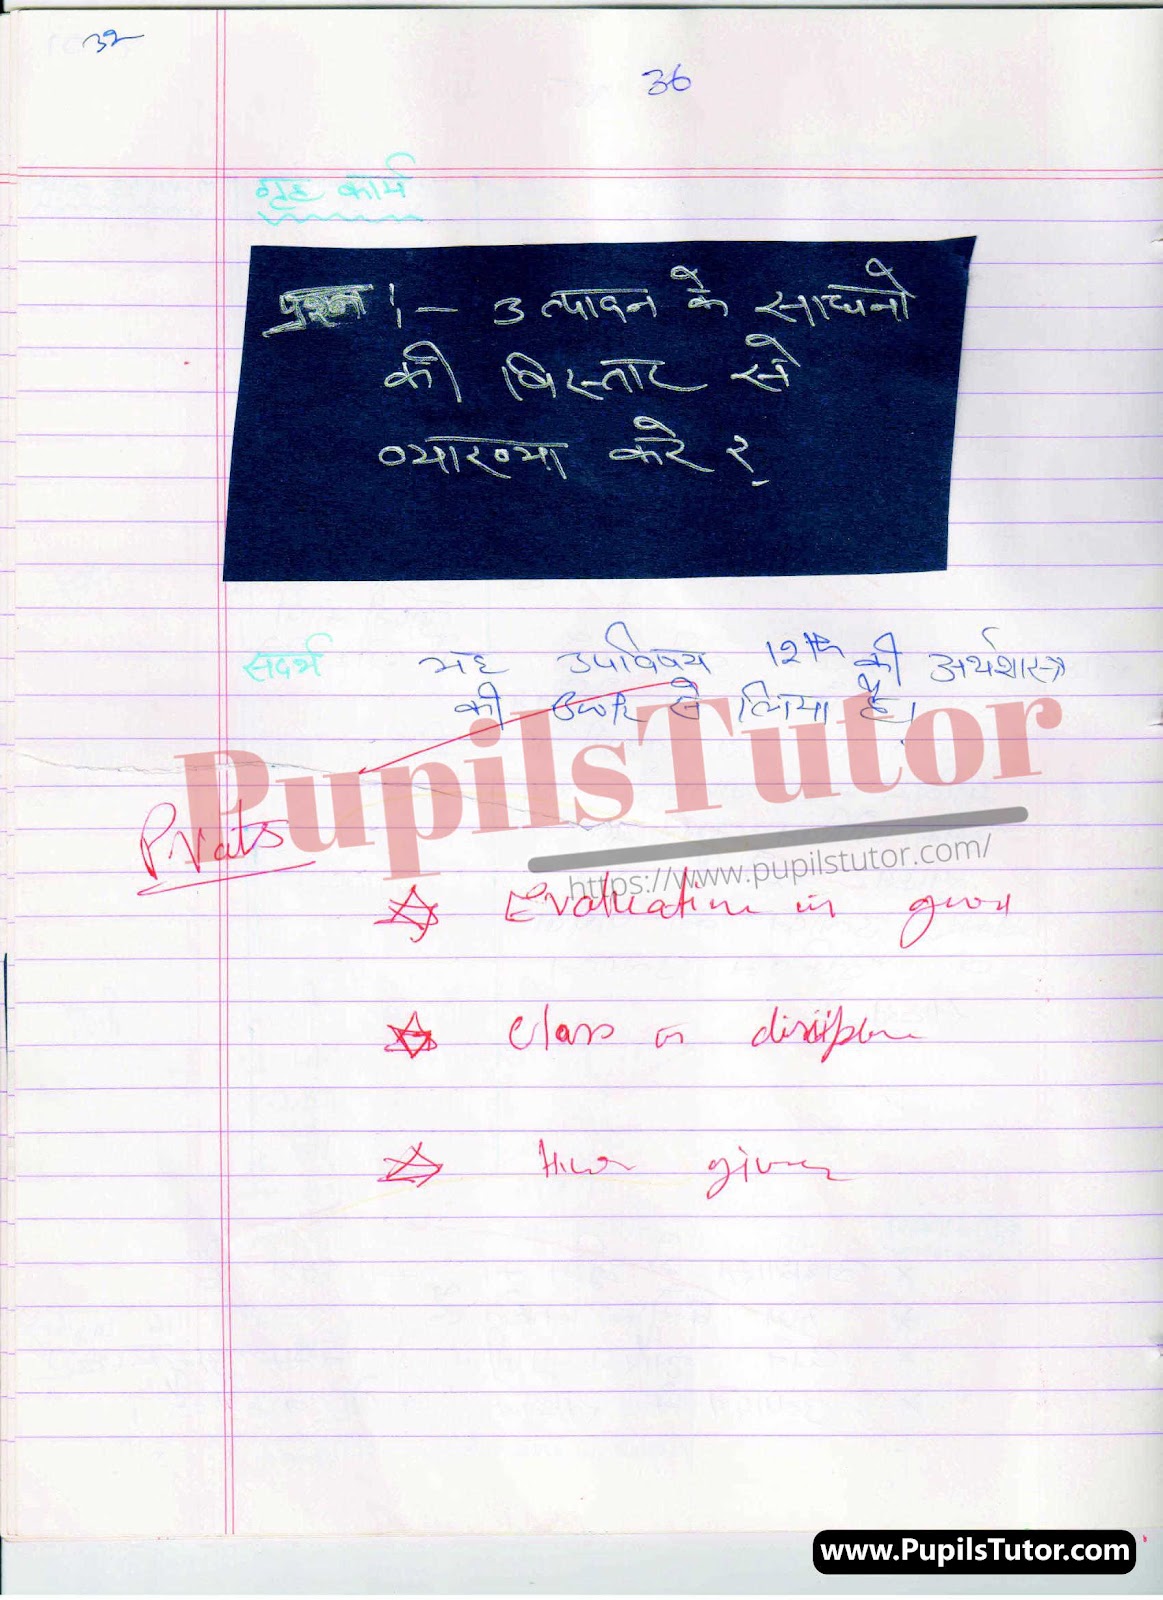 32
36
गृह कार्य
प्रश्न :- उत्पादन के साधनो
की बिस्तार से
व्याख्या करे ?
संदर्भ यह उपविषय 12th की अर्थशास्त्र
की से लिया है।
PupilsTutor
https://www.pupilstutor.com/
Evaluation in good
Class discipline
given
www.PupilsTutor.com